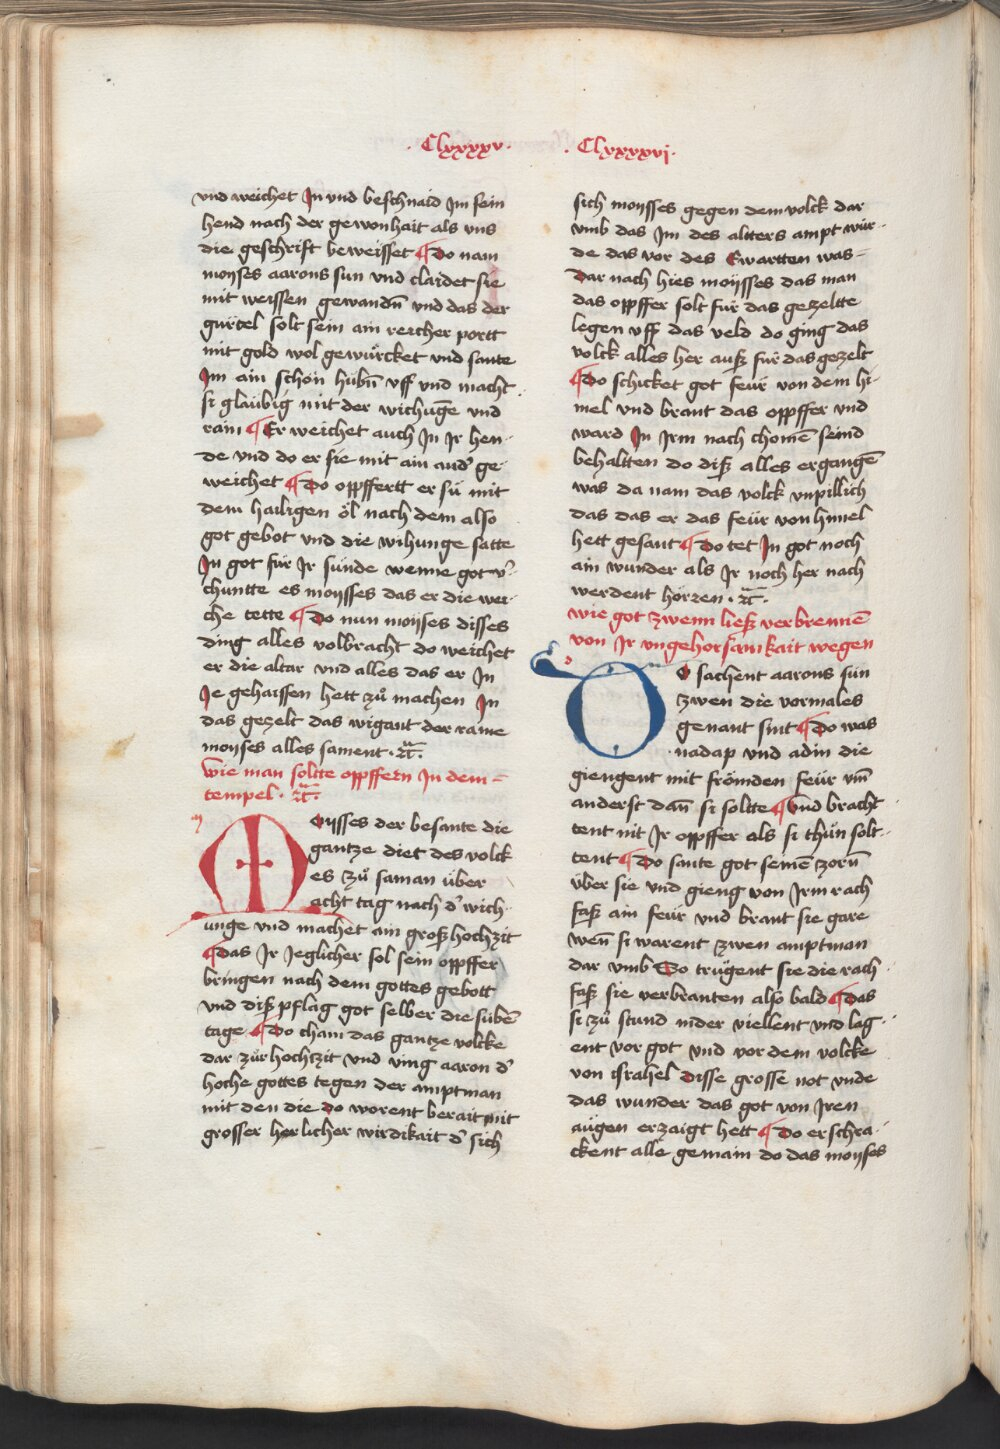 · Clxxxxv ·
· Clxxxxvj ·
vnd weichet Jn vnd beschnaid Jm sein
hend nach der gewonhait als vns
die geschrift beweisset ¶ Do nam
moyses aarons sun vnd claidet sie
mit weissen gewandn̄ vnd das der
gürtel solt sein ain reicher portt
mit gold wol gewürcket vnd sante
Jm ain schön hübn̄ vff vnd macht
si gläubig mit der wichūge vnd
rain ¶ Er weichet auch Jn Jr hen-
de vnd do er sie mit ain and' ge-
weichet ¶ Do oppffertt er sü mit
dem hailigen öl nach dem also
got gebot vnd die wihunge satte
Jn got für Jr sünde wenne got v'-
chuntte es moysses das er die wei-
che tette ¶ Do nun moyses disses
ding alles volbracht do weichet
er die altar vnd alles das er Jn
Je gehaissen hett zů machen Jn
das gezelt das wigant der raine
moyses alles sament · ꝛc̄ ·
wie man soltte oppffern Jn dem-
tempel · ꝛc̄ ·
MOysses der besante die
gantze diet des volck
es zů saman über
acht tag nach d' wich-
unge vnd machet ain groß hochzit
¶ Das Jr Jeglicher sol sein oppffer
bringen nach dem gottes gebott
vnd diß pflag got selber die sübē
tage ¶ Do cham das gantze volcke
dar zůr hochtzit vnd ving aaron d'
hoche gottes tegen der amptman
mit den die do worent berait mit
grosser herlicher wirdikait d' sich
sich moysses gegen dem volck dar
vmb das Jm des altters ampt wür-
de das vor des Ewartten was-
Dar nach hies moysses das man
das oppffer solt für das gezeltte
legen vff das veld do ging das
volck alles her auß für das gezelt
¶ Do schicket got feür von dem hi-
mel vnd brant das oppffer vnd
ward Jn Jrm nach chomē seind
behaltten do diß alles ergangē
was da nam das volck vnpillich
das das er das feür von himel
hett gesant ¶ Do tet Jn got noch
ain wunder als Jr noch her nach
werdent hörren · ꝛc̄ ·
wie got zwenn ließ verbrennē
von Jr vngehorsamkait wegen
DO sachent aarons sün
zwen die vormales
genant sint ¶ Do was
nadap vnd adin die
giengent mit frömden feür vnn̄
anderst dan̄ si soltte ¶ Vnd bracht-
tent nit Jr oppffer als si thůn solt-
tent ¶ Do sante got seinē zorn̄
über sie vnd gieng von Jrm rach
faß ain feür vnd brant sie gare
wen̄ si warent zwen amptman
dar vmb So trügent sie die rach-
faß sie verbranten also bald ¶ Das
si zů stund nider viellent vnd lag-
ent vor got vnd vor dem volcke
von israhel Disse grosse not vnde
das wunder das got von Jren
augen erzaigt hett ¶ Do erschra-
ckent alle gemain do das moyses